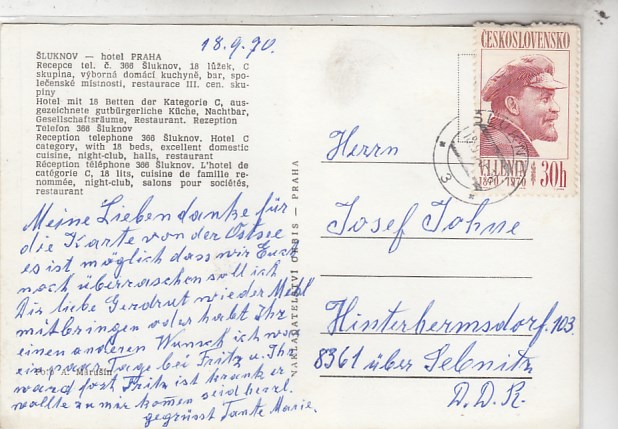 18.9.70.
ŠLUKNOV — hotel PRAHA
Recepce tel. č. 366 Šluknov, 18 lůžek, C
skupina, výborná domácí kuchyně, bar, spo-
lečenské místnosti, restaurace III. cen. sku-
piny
Hotel mit 18 Betten der Kategorie C, aus-
gezeichnete gutbürgerliche Küche, Nachtbar,
Gesellschaftsräume, Restaurant. Rezeption
Telefon 366 Šluknov
Reception telephone 366 Šluknov. Hotel C
category, with 18 beds, excellent domestic
cuisine, night-club, halls, restaurant
Réception téléphone 366 Šluknov. L'hotel de
catégorie C, 18 lits, cuisine de famille re-
nommée, night-club, salons pour sociétés,
restaurant
Meine Lieben danke für
die Karte von der Ostsee
es ist möglich dass wir Euch
noch überraschen soll ich
Dir liebe Gerdrut wieder Mehl
mitbringen oder habt Ihr
einen anderen Wunsch ich war
ein paar Tage bei Fritz u. Ihr
ward fort Fritz ist krank er
wollte zu mir komen seid herzl.
gegrüsst Tante Marie.
Foto A. Marušin
NAKLADATELSTVÍ ORBIS — PRAHA
ČESKOSLOVENSKO
V.I. LENIN
1870-1970
30h
Herrn
Josef Johne
Hinterhermsdorf 103
8361 über Sebnitz
D.D.R.